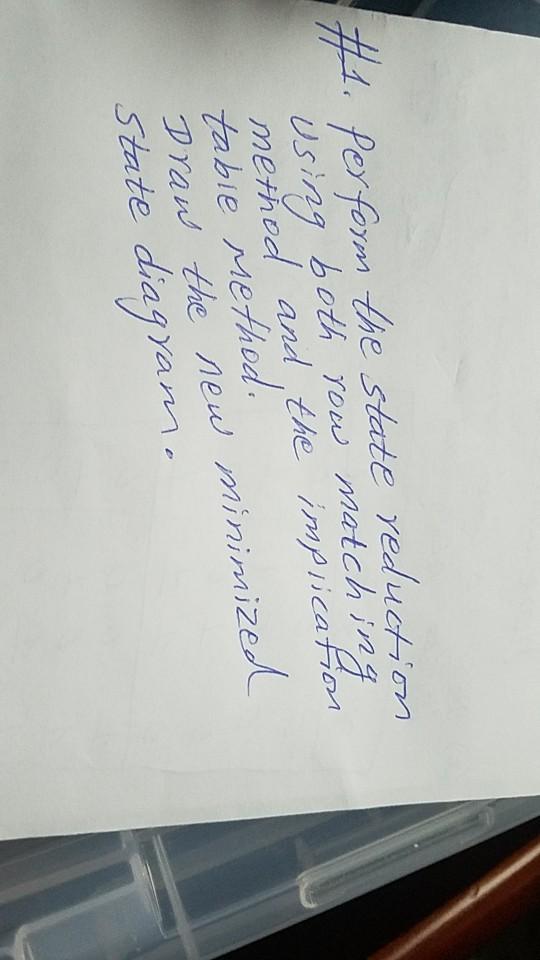 #1. perform the state reduction
using both row matching
method and the implication
table method.
Draw the new minimized
state diagram.